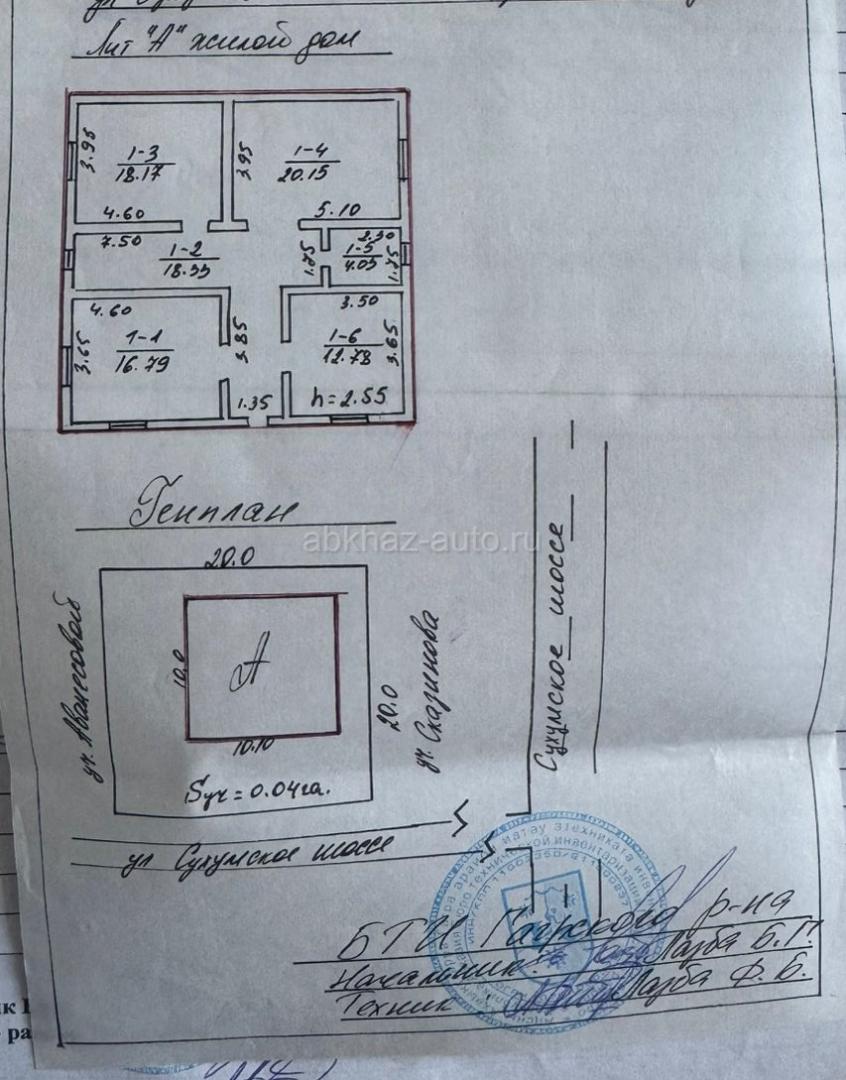 Лит "А" жилой дом
3.95
1-3
18.17
3.95
1-4
20.15
4.60
5.10
7.50
1-2
18.35
1.75
2.30
1-5
4.05
1.75
4.60
3.50
3.65
1-1
16.79
3.85
1-6
12.78
3.65
1.35
h=2.55
Генплан
abkhaz-auto.ru
20.0
уч. Аванесовой
10.0
А
20.0
уч. Сказинова
Сухумское шоссе
10.10
Sуч = 0.04га.
ул Сухумское шоссе
БТИ Гагрского р-на
Начальник: Лазба Б.Г.
Техник: Лазба Ф.Б.